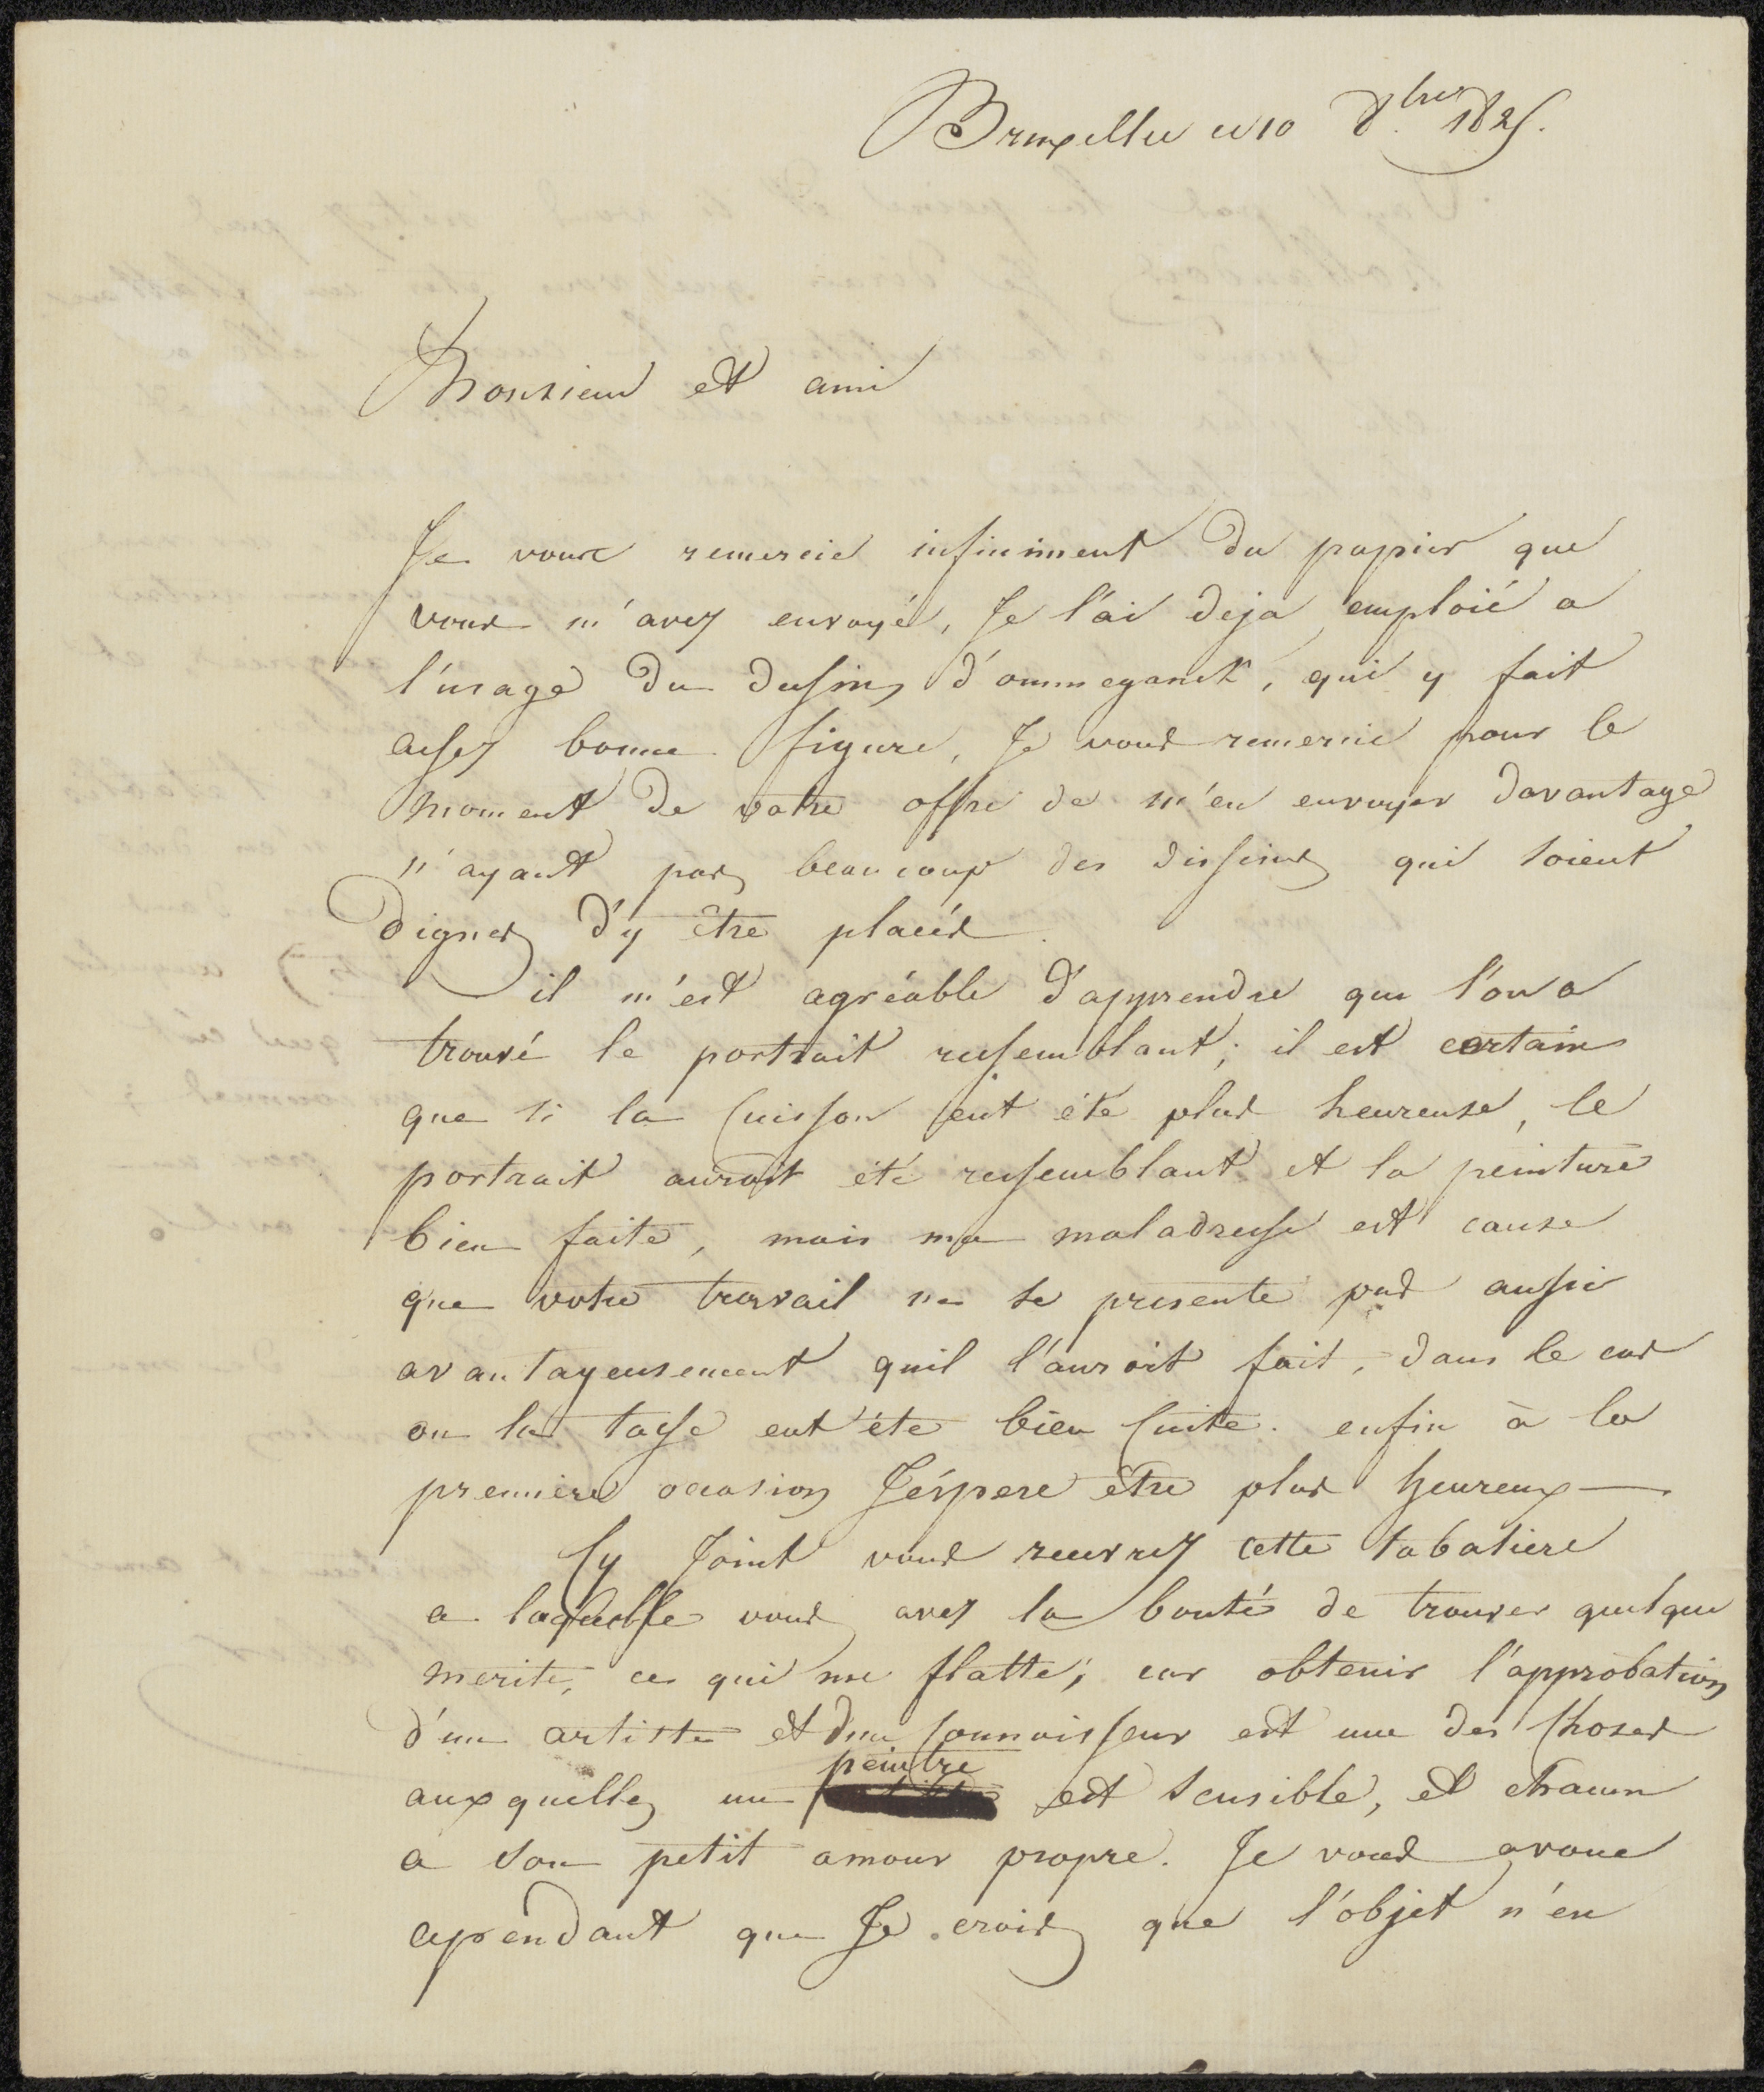 Bruxelles ce 10 8.bre 1825.
Monsieur et ami
Je vous remercie infiniment du papier que
vous m'avez envoyé, Je l'ai deja emploié a
l'usage du dessins d'ommeganck, qui y fait
assez bonne figure, Je vous remercie pour le
moment de votre offre de m'en envoyer davantage
n'ayant pas beaucoup des dessins qui soient
dignes d'y être placés.
il m'est agréable d'apprendre que l'on a
trouvé le portrait ressemblant; il est certain
que si la Cuisson eut été plus heureuse, le
portrait auroit été ressemblant et la peinture
bien faite, mais ma maladresse est cause
que votre travail ne se presente pas aussi
avantageusement quil l'auroit fait, dans le cas
ou la tasse eut été bien Cuite. enfin à la
premiere occasion J'éspere être plus heureux —
Cy Joint vous recevrez cette tabatiere
a laquelle vous avez la bonté de trouver quelque
merite, ce qui me flatte; car obtenir l'approbation
d'un artiste et d'un Connoisseur est une des Choses
auxquelles un peintre est sensible, et chacun
a son petit amour propre. Je vous avoue
cependant que Je crois que l'objet n'en